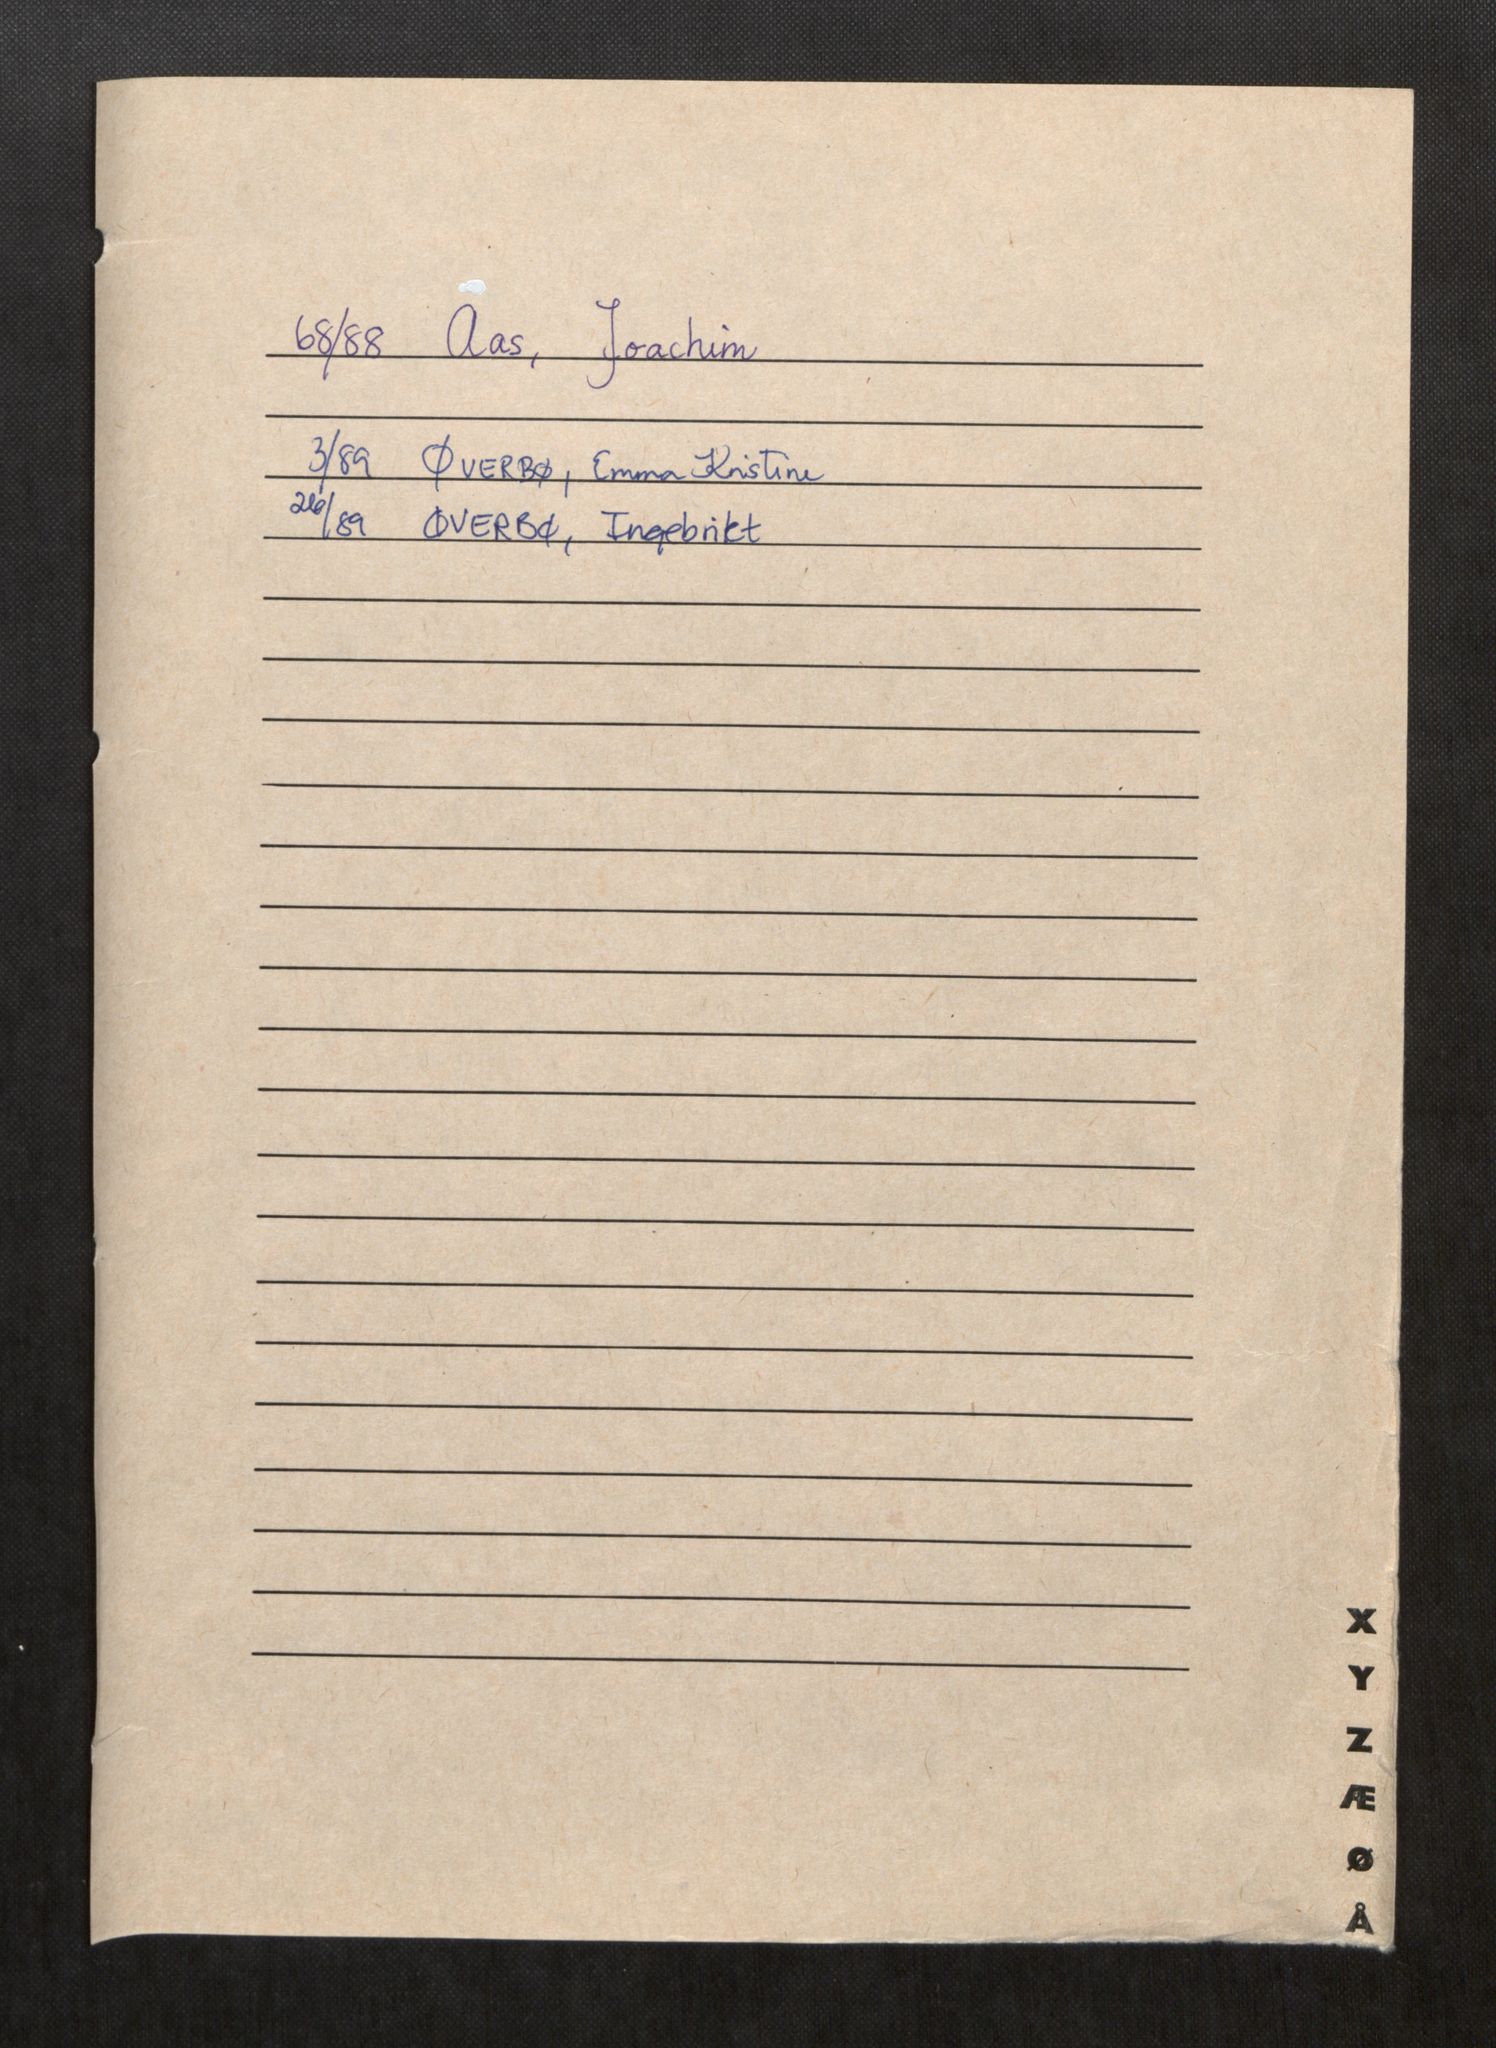 68/88 Aas, Joachim
3/89 ØVERBØ, Emma Kristine
26/89 ØVERBØ, Ingebrikt
X
Y
Z
Æ
Ø
Å